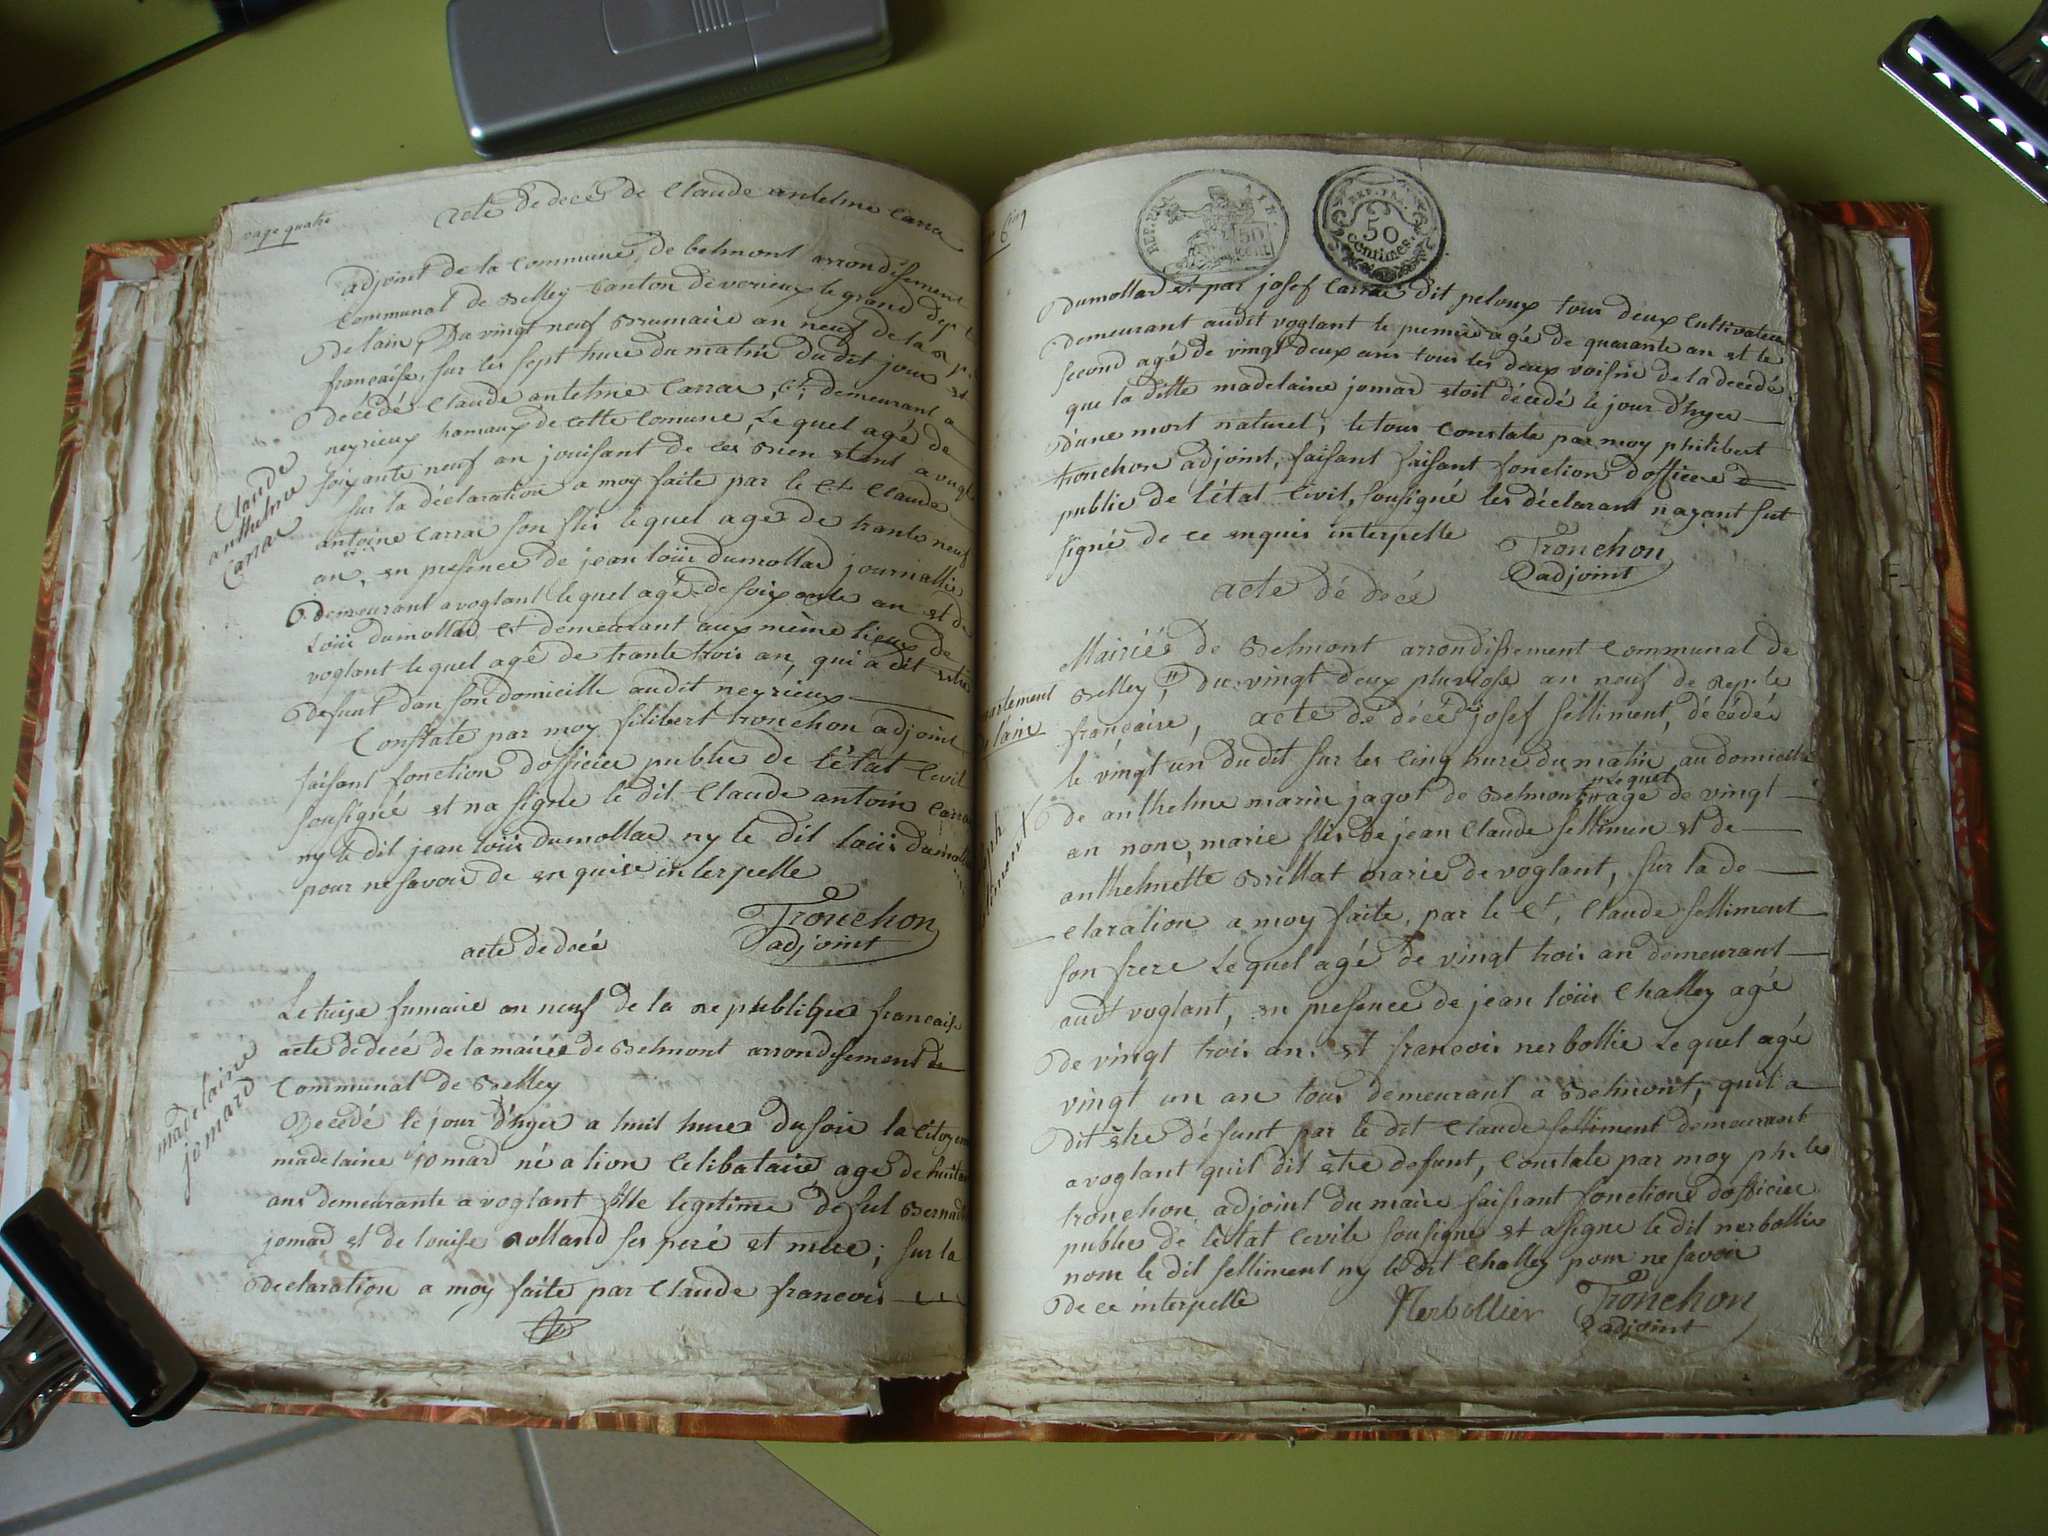 page quatre
acte de decès de Claude antelme Carra
adjoint de la Commune de belmont arrondisement
Communal de Belley Canton de verieux le grand dep.t
de lain, Du vingt neuf Brumaire an neuf de la rep.
francaise, sur les sept hure du matin dudit jour est
Décédé Claude antelme Carrae, C.t demeurant a
neyrieux hamaux de cette Comune, Lequel agé de
soixante neuf an jouisant de ces Bien etant a vugl
sur la déclaration a moy faite par le C.t Claude
antoine Carrae son flis lequel agé de trante neuf
an, en presence de jean loüis dumollar journallie
demeurant a voglant lequel agé de soixante an et de
Loüis dumollar C.t demeurant aux même lieux de
voglant lequel agé de trante trois an, qui a dit estre
defunt dan son domicille audit neyrieux
Constate par moy filibert tronchon adjoint
faisant fonction dofficier public de létat Civil
sousigné et na signe le dit Claude antoin Carra
ny le dit jean loüis dumollar ny le dit loüis dumolla
pour ne savoir de enquise interpelle
Tronchon
adjoint
Claude
anthelme
Carrae
acte de decé
Le treise frimaire an neuf de la republique francaise
acte de decé de la mairie de Belmont arrondisement de
Communal de Belley
Decedé le jour d'hyer a huit hures du soir la Citoyene
madelaine jomard né a lion Celibataire, agé de huitan
ans demeurante a voglant fille legitime defut Bernard
jomard et de louise rolland ses peré et mere; sur la
declaration a moy faite par Claude francois
madelaine
jomard
Dumollar et par josef Carrae dit peloux tous deux Cultivateur
demeurant audit voglant le premier agé de quarante an et le
second agé de vingt deux ans tous les deux voisin de la decédé
que la ditte madelaine jomard etoit décédé le jour d'hyer
d'une mort naturel; le tous Constate par moy philibert
tronchon adjoint, faisant faisant fonction dofficier d
public de létat Civil, sousigné les déclarant nayant sut
signé de ce enquis interpelle
Tronchon
adjoint
REP. FRA.
50
centimes.
acte dé decé
Mairiés de Belmont arrondissement Communal de
Belley, Du vingt deux pluviose an neuf de Rep.le
française, acte dé décé josef selliment, décédée
le vingt un dudit sur les Cinq hure du matin, au domicille
de anthelme marin jagot de Belmont, lequel agé de vingt
an nom, marie flis de jean Claude sellimen et de
anthelmette Brillat marie de voglant, sur la de
claration a moy faite, par le C.t, Claude selliment
son frere Lequel agé de vingt trois an demeurant
audt voglant, en presence de jean loüis Challey agé
de vingt trois an, et francois nerbollie Lequel agé
vingt un an tous demeurant a Belmont, quil a
dit être défunt par le dit Claude selliment demeurant
a voglant quil dit être defunt, Constate par moy ph. le
tronchon adjoint du maire faissant fonctions dofficier
public de létat Civile sousigne et asigne le dit nerbollie
nom le dit selliment ny le dit Challey pour ne savoir
de ce interpelle
Nerbollier
Tronchon
adjoint